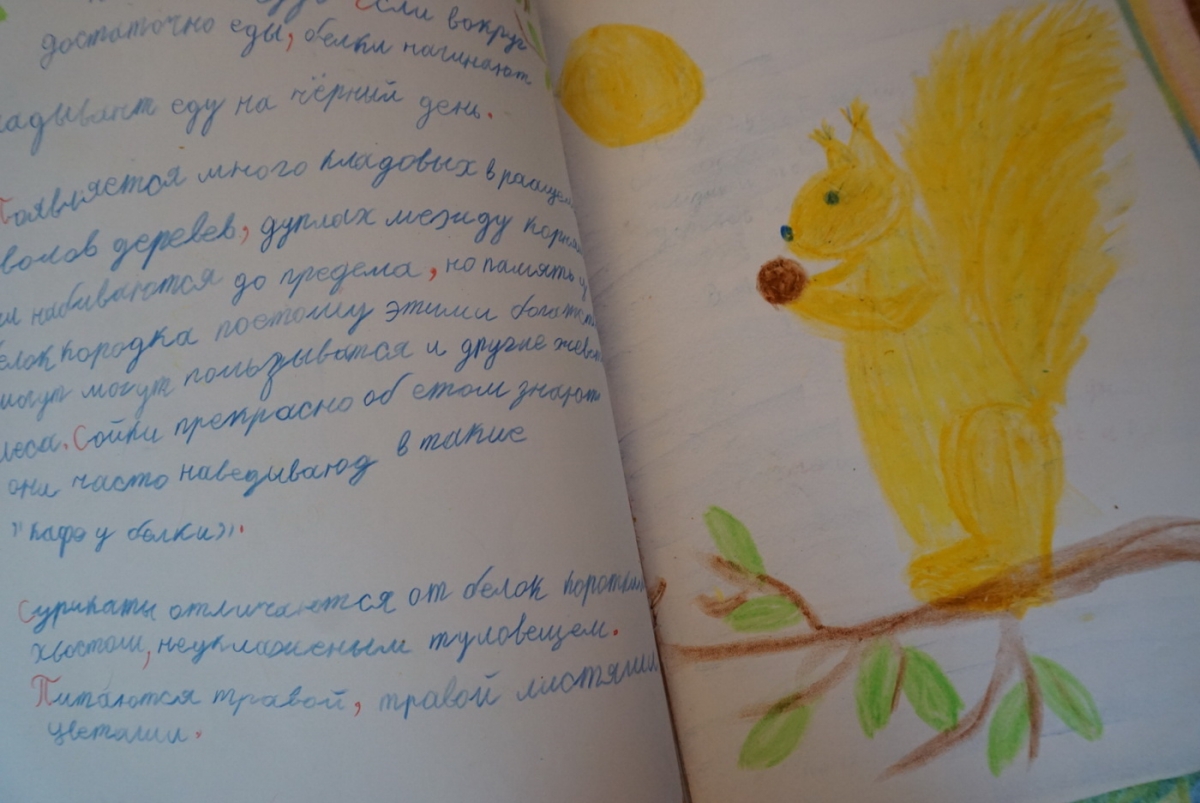 Если вокруг
достаточно еды, белки начинают
еду на чёрный день.
Появляется много кладовых в
деревев, дуплах между
набиваются до предема, но память у
кородка поетому этими
могут пользыватся и другие
леса. Сойки прекрасно об етом знают
они часто наведываюд в такие
"кафэ у белки».
Сурикаты отличаются от белок
хвостом, неуклюженым туловещем.
Питаются травой, травой листями
цветами.